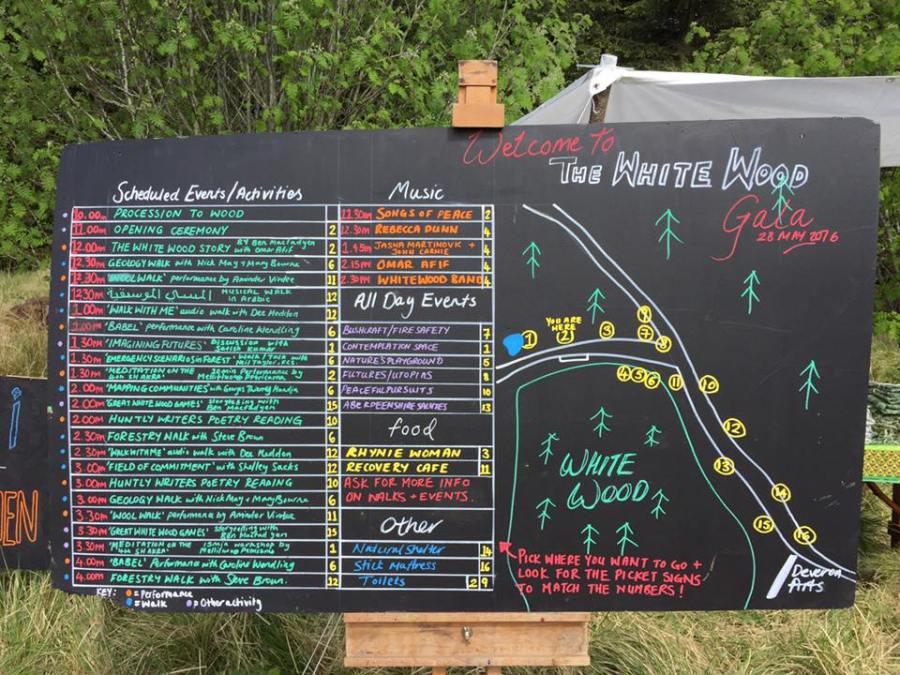 Welcome to
THE WHITE WOOD
Gala
28 MAY 2016
Scheduled Events/Activities
10.00am PROCESSION TO WOOD
11.00am OPENING CEREMONY 2
12.00pm THE WHITE WOOD STORY BY Ben Macfadyen with Omar Afif 2
12.30pm GEOLOGY WALK with Nick May + Mary Bourne 6
12.30pm WOOL WALK' performance by Aminder Virdee 11
12.30pm المشي الموسيقية MUSICAL WALK in Arabic 12
1.00pm 'WALK WITH ME' audio walk with Dee Heddon 12
1.00pm 'BABEL' performance with Caroline Wendling 6
1.30pm 'IMAGINING FUTURES' Discussion with Satish Kumar 1
1.30pm 'EMERGENCY SCENARIOS in FOREST' Walk/Talk with Neil Taylor, FCS 6
1.30pm 'MEDITATION ON THE 15min Performance by 2
2.00pm 'MAPPING COMMUNITIES' with 6
2.00pm 'GREAT WHITE WOOD GAMES' Storytelling with Ben Macfadyen 15
2.00pm HUNTLY WRITERS POETRY READING 10
2.30pm FORESTRY WALK with Steve Brown 6
2.30pm 'WALK WITH ME' audio walk with Dee Heddon 12
3.00pm 'FIELD OF COMMITMENT' with Shelley Sacks 12
3.00pm HUNTLY WRITERS POETRY READING 10
3.00pm GEOLOGY WALK with Nick May + Mary Bourne 6
3.30pm 'WOOL WALK' performance by Aminder Virdee 11
3.30pm 'GREAT WHITE WOOD GAMES' Storytelling with Ben Macfadyen 15
3.30pm 'MEDITATION ON THE 15min workshop by 1
4.00pm 'BABEL' Performance with Caroline Wendling 6
4.00pm FORESTRY WALK with Steve Brown. 12
KEY: = Performance
= Walk = Other activity
Music
11.30am SONGS OF PEACE 2
12.30pm REBECCA DUNN 4
1.45pm JASNA MARTINOVIC + JOHN CARNIE 4
2.15pm OMAR AFIF 4
2.30pm WHITEWOOD BAND 4
All Day Events
BUSHCRAFT/FIRE SAFETY 7
CONTEMPLATION SPACE 1
NATURES PLAYGROUND 5
FUTURES/UTOPIAS 8
PEACEFUL PURSUITS 10
ABERDEENSHIRE 13
food
RHYNIE WOMAN 3
RECOVERY CAFE 11
ASK FOR MORE INFO
ON WALKS + EVENTS.
Other
Natural Shelter 14
Stick Mattress 16
Toilets 2 9
YOU ARE
HERE
1
2
3
9
7
8
4 5 6
11
10
12
13
14
15
16
WHITE
WOOD
PICK WHERE YOU WANT TO GO +
LOOK FOR THE PICKET SIGNS
TO MATCH THE NUMBERS!
Deveron
Arts